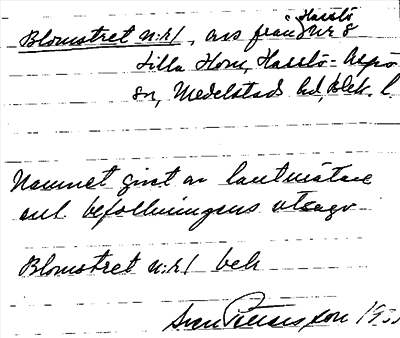 Hasslö
Blomstret n:r 1, avs från Nr 8
Lilla Horn, Hasslö-Aspö
sn, Medelstads hd, Blek. l.
Namnet givet av lantmätare
enl. befolkningens utsago
Blomstret n:r 1 beb
Sven Petersson 19